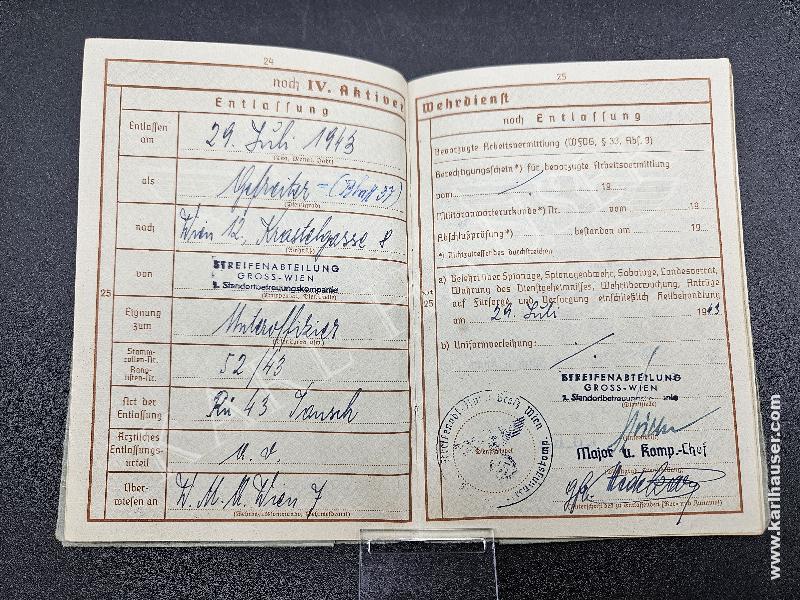 24
noch IV. Aktiver
Entlassung
Entlassen am
29. Juli 1943
(Tag, Monat, Jahr)
als
Gefreiter = (Blatt 37)
(Dienstgrad)
nach
Wien 12, Krastelgasse 8
von
STREIFENABTEILUNG
GROSS-WIEN
2. Standortbetreuungskompanie
25
Eignung zum
Unteroffizier
Stamm-
rollen-Nr.
Rang-
listen-Nr.
52/43
Art der
Entlassung
Rü 43 Tausch
Ärztliches
Entlassungs-
urteil
a. v.
Über-
wiesen an
W. M. A. Wien 7
25
Wehrdienst
noch Entlassung
Bevorzugte Arbeitsvermittlung (WFVG, § 33, Abs. 3)
Berechtigungsschein*) für bevorzugte Arbeitsvermittlung
vom 19
Militäranwärterurkunde*) Nr. vom 19
Abschlußprüfung*) bestanden am 19
*) Nichtzutreffendes durchstreichen
a) Belehrt über Spionage, Spionageabwehr, Sabotage, Landesverrat,
Wahrung des Dienstgeheimnisses, Wehrüberwachung, Anträge
auf Fürsorge und Versorgung einschließlich Heilbehandlung
am 29. Juli 1943
25
b) Uniformverleihung:
STREIFENABTEILUNG
GROSS-WIEN
2. Standortbetreuungskompanie
(Dienststelle)
Major u. Komp.-Chef
www.karlhauser.com